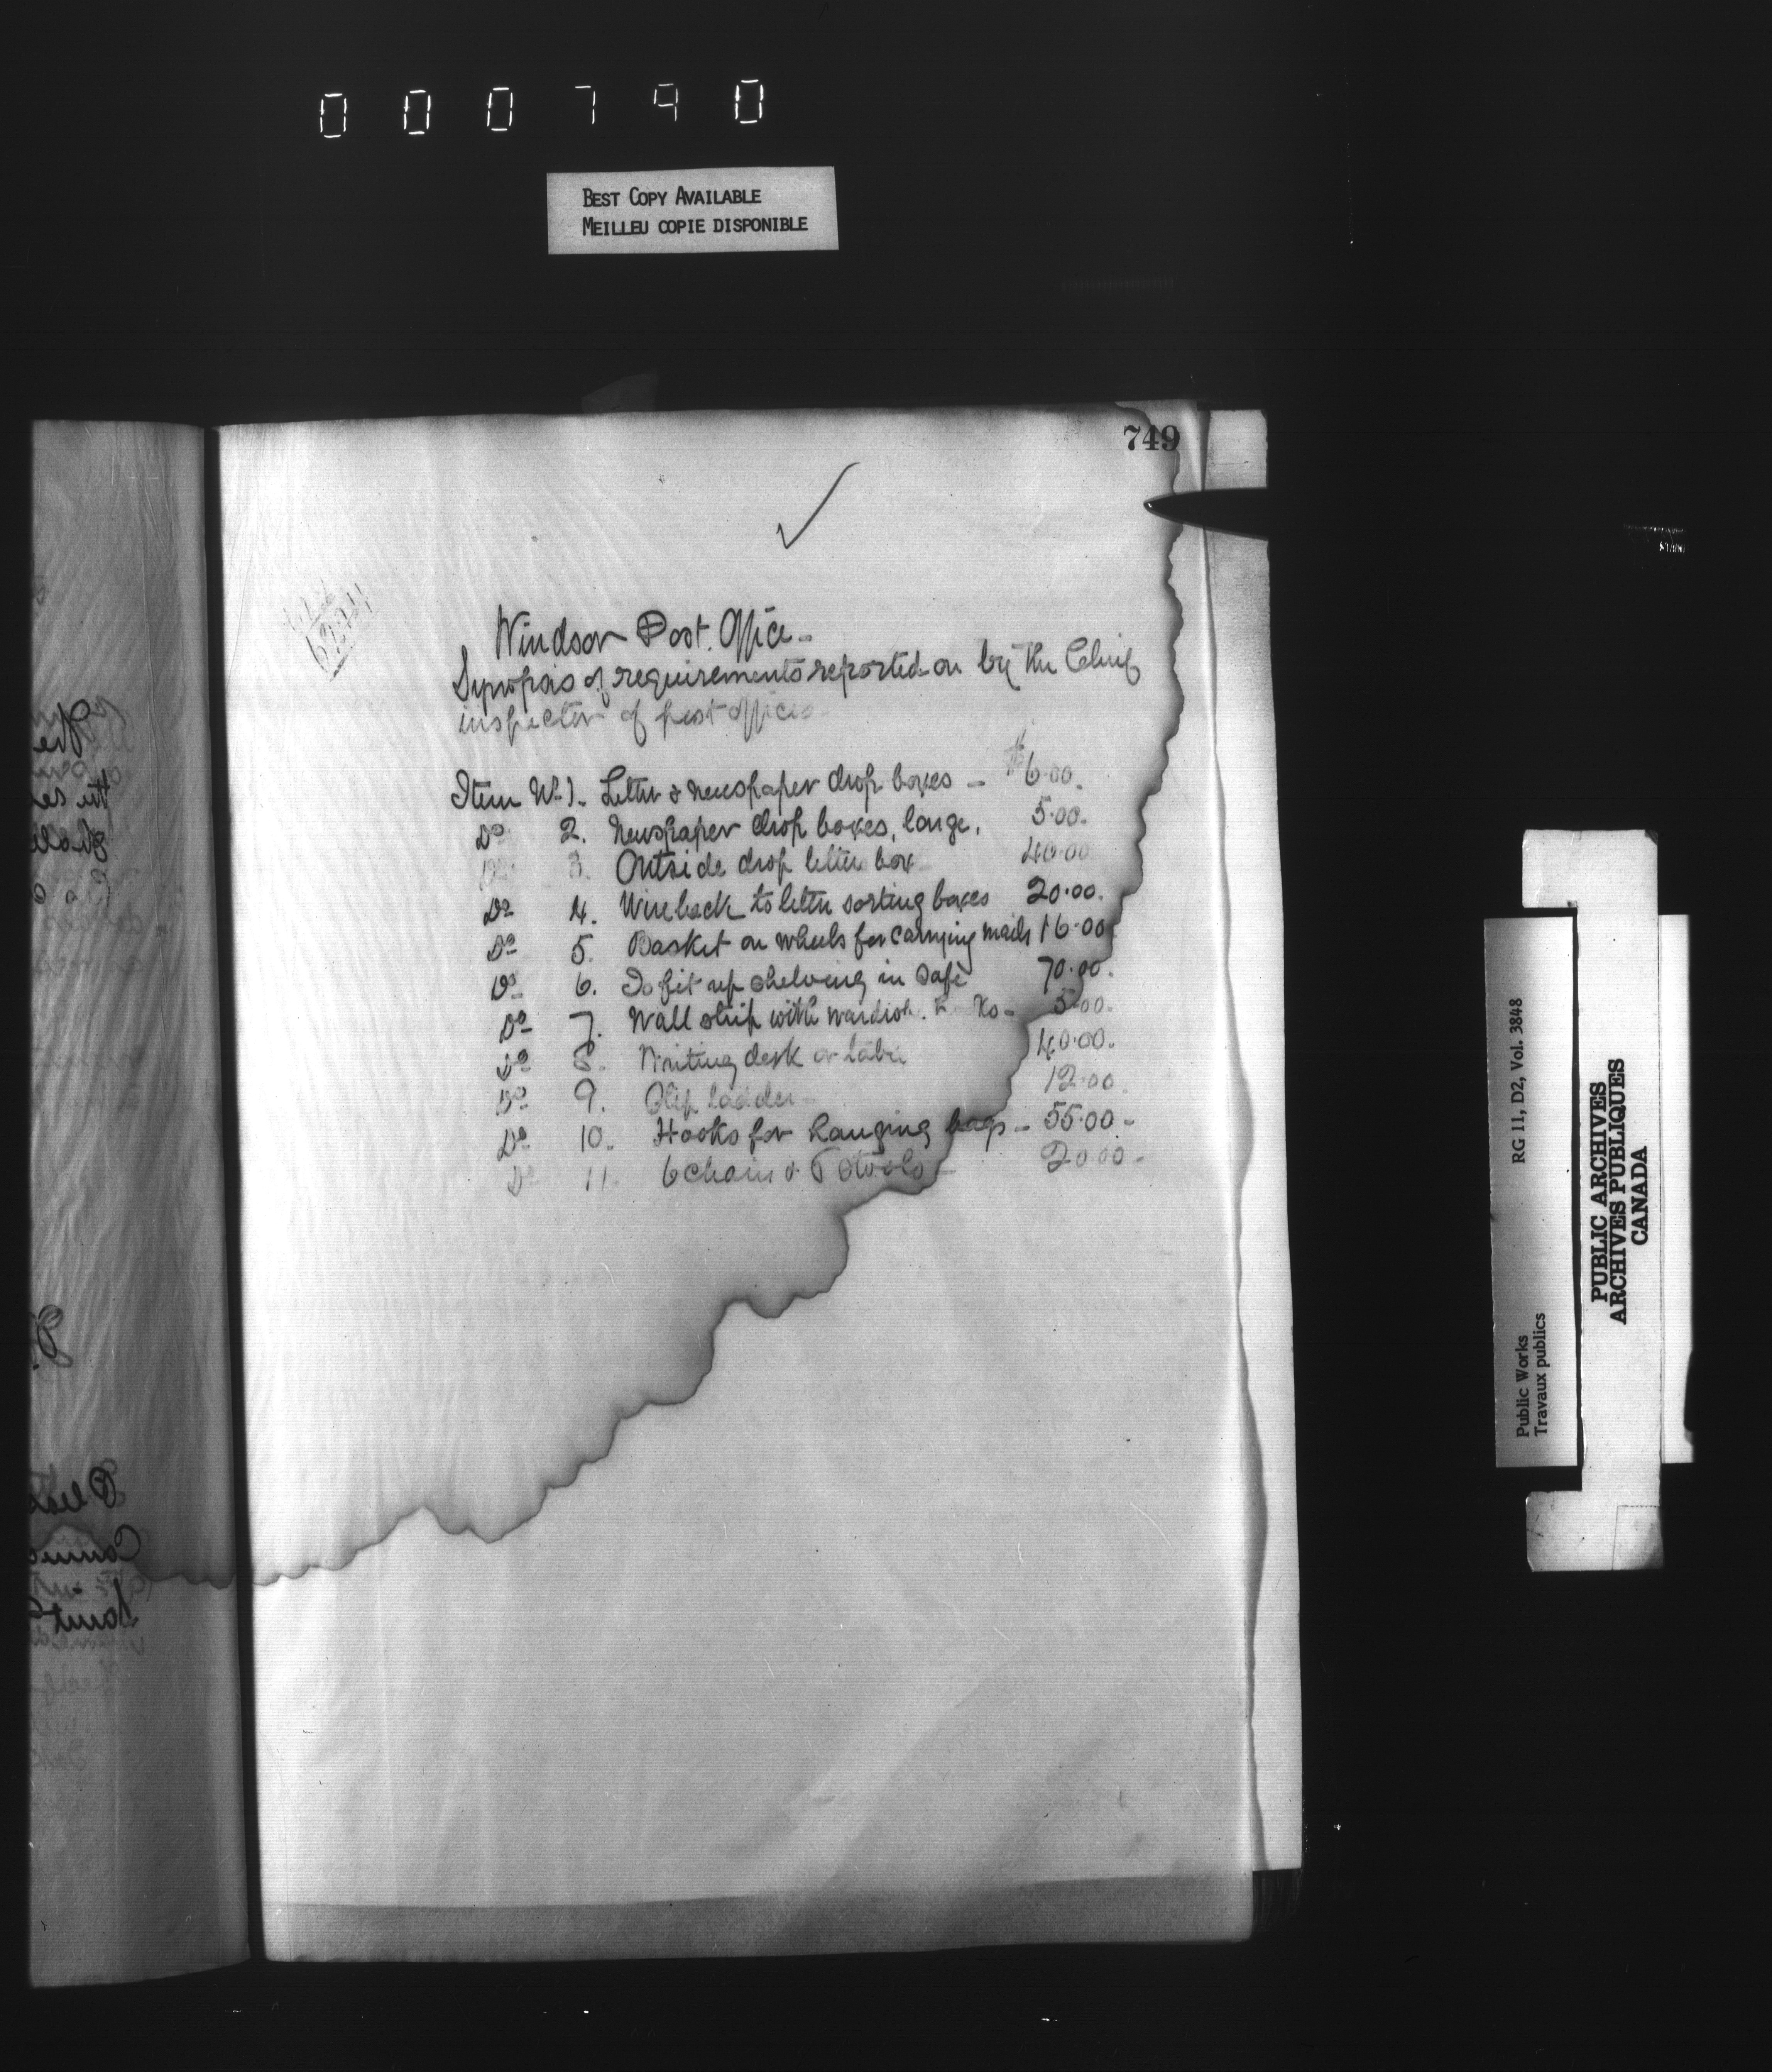 000790
BEST COPY AVAILABLE
MEILLEU COPIE DISPONIBLE
749
Windsor Post. Office -
Synopsis of requirements reported on by the Chief
inspector of post offices
Item No 1. Letter & newspaper drop boxes - $6.00.
Do 2. Newspaper drop boxes, large. 5.00.
Do 3. Outside drop letter box 40.00
Do 4. Wire back to letter sorting boxes 20.00.
Do 5. Basket on wheels for carrying mails 16.00
Do 6. To fit up shelving in safe 70.00.
Do 7. Wall strip with 5.00.
Do 8. Writing desk or table 40.00.
Do 9. Slip ladder - 12.00.
Do 10. Hooks for hanging bags - 55.00 -
Do 11. 6 chairs & 6 stools - 20.00 -
RG 11, D2, Vol. 3848
Public Works
Travaux publics
PUBLIC ARCHIVES
ARCHIVES PUBLIQUES
CANADA